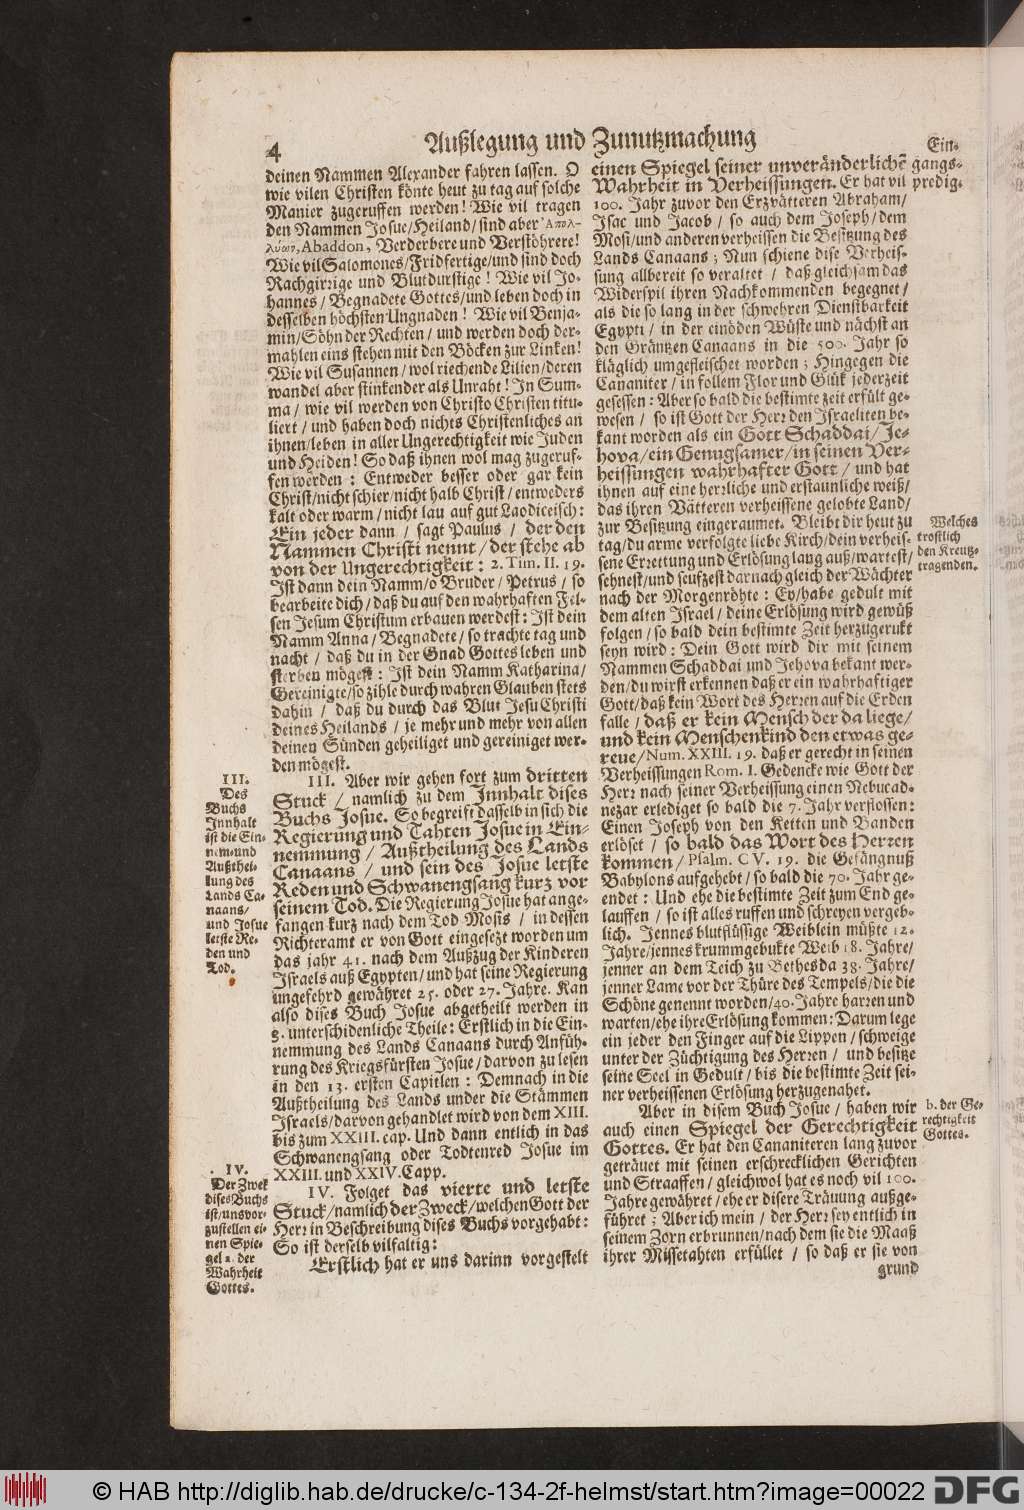 4
Außlegung und Zunutzmachung
deinen Nammen Alexander fahren lassen. O
wie vilen Christen könte heut zu tag auf solche
Manier zugeruffen werden! Wie vil tragen
den Nammen Josue/Heiland/sind aber Ἀπολ-
λύων, Abaddon, Verderbere und Verstöhrere!
Wie vil Salomones/Fridfertige/und sind doch
Rachgirzige und Blutdurstige! Wie vil Jo-
hannes/Begnadete Gottes/und leben doch in
desselben höchsten Ungnaden! Wie vil Benja-
min/Söhn der Rechten/und werden doch der-
mahlen eins stehen mit den Böcken zur Linken!
Wie vil Susannen/wol riechende Lilien/deren
wandel aber stinkender als Unraht! In Sum-
ma/wie vil werden von Christo Christen titu-
liert/und haben doch nichts Christenliches an
ihnen/leben in aller Ungerechtigkeit wie Juden
und Heiden! So daß ihnen wol mag zugeruf-
fen werden: Entweder besser oder gar kein
Christ/nicht schier/nicht halb Christ/entweders
kalt oder warm/nicht lau auf gut Laodiceisch:
Ein jeder dann/sagt Paulus/der den
Nammen Christi nennt/der stehe ab
von der Ungerechtigkeit: 2. Tim. II. 19.
Ist dann dein Namm/o Bruder/Petrus/so
bearbeite dich/daß du auf den wahrhaften Fel-
sen Jesum Christum erbauen werdest: Ist dein
Namm Anna/Begnadete/so trachte tag und
nacht/daß du in der Gnad Gottes leben und
sterben mögest: Ist dein Namm Katharina/
Gereinigte/so zihle durch wahren Glauben stets
dahin/daß du durch das Blut Jesu Christi
deines Heilands/je mehr und mehr von allen
deinen Sünden geheiliget und gereiniget wer-
den mögest.
III.
Des
Buchs
Innhalt
ist die Ein-
nem-und
Außthei-
lung des
Lands Ca-
naans/
und Josue
letste Re-
den und
Tod.
III. Aber wir gehen fort zum dritten
Stuck/namlich zu dem Innhalt dises
Buchs Josue. So begreift dasselb in sich die
Regierung und Tahten Josue in Ein-
nemmung/Außtheilung des Lands
Canaans/und sein des Josue letste
Reden und Schwanengsang kurz vor
seinem Tod. Die Regierung Josue hat ange-
fangen kurz nach dem Tod Mosis/in dessen
Richteramt er von Gott eingesezt worden um
das jahr 41. nach dem Außzug der Kinderen
Israels auß Egypten/und hat seine Regierung
ungefehrd gewähret 25. oder 27. Jahre. Kan
also dises Buch Josue abgetheilt werden in
3. unterschidenliche Theile: Erstlich in die Ein-
nemmung des Lands Canaans durch Anfüh-
rung des Kriegsfürsten Josue/darvon zu lesen
in den 13. ersten Capitlen: Demnach in die
Außtheilung des Lands under die Stämmen
Israels/darvon gehandlet wird von dem XIII.
bis zum XXIII. cap. Und dann entlich in das
Schwanengsang oder Todtenred Josue im
XXIII. und XXIV. Capp.
IV.
Der Zwek
dises Buchs
ist/uns vor-
zustellen ei-
nen Spie-
gel a. der
Wahrheit
Gottes.
IV. Folget das vierte und letste
Stuck/namlich der Zweck/welchen Gott der
Herr in Beschreibung dises Buchs vorgehabt:
So ist derselb vilfaltig:
Erstlich hat er uns darinn vorgestelt
Ein-
gangs-
predig.
einen Spiegel seiner unveränderlichẽ
Wahrheit in Verheissungen. Er hat vil
100. Jahr zuvor den Erzvätteren Abraham/
Isac und Jacob/so auch dem Joseph/dem
Mosi/und anderen verheissen die Besitzung des
Lands Canaans; Nun schiene dise Verheis-
sung allbereit so veraltet/daß gleichsam das
Widerspil ihren Nachkommenden begegnet/
als die so lang in der schwehren Dienstbarkeit
Egypti/in der einöden Wüste und nächst an
den Gräntzen Canaans in die 500. Jahr so
kläglich umgefleischet worden; Hingegen die
Cananiter/in follem Flor und Glük jederzeit
gesessen: Aber so bald die bestimte zeit erfült ge-
wesen/so ist Gott der Herr den Israeliten be-
kant worden als ein Gott Schaddai/Je-
hova/ein Genugsamer/in seinen Ver-
heissungen wahrhafter Gott/und hat
ihnen auf eine herrliche und erstaunliche weiß/
das ihren Vätteren verheissene gelobte Land/
zur Besitzung eingeraumet. Bleibt dir heut zu
tag/du arme verfolgte liebe Kirch/dein verheis-
sene Erzettung und Erlösung lang auß/wartest/
sehnest/und seufzest darnach gleich der Wächter
nach der Morgenröhte: Ey/habe gedult mit
dem alten Israel/deine Erlösung wird gewüß
folgen/so bald dein bestimte Zeit herzugerukt
seyn wird: Dein Gott wird dir mit seinem
Nammen Schaddai und Jehova bekant wer-
den/du wirst erkennen daß er ein wahrhaftiger
Gott/daß kein Wort des Herren auf die Erden
falle/daß er kein Mensch der da liege/
und kein Menschenkind den etwas ge-
reue/Num. XXIII. 19. daß er gerecht in seinen
Verheissungen Rom. I. Gedencke wie Gott der
Herr nach seiner Verheissung einen Nebucad-
nezar erlediget so bald die 7. Jahr verflossen:
Einen Joseph von den Ketten und Banden
erlöset/so bald das Wort des Herren
kommen/Psalm. CV. 19. die Gefängnuß
Babylons aufgehebt/so bald die 70. Jahr ge-
endet: Und ehe die bestimte Zeit zum End ge-
lauffen/so ist alles ruffen und schreyen vergeb-
lich. Jennes blutflüssige Weiblein müßte 12.
Jahre/jennes krummgebukte Weib 18. Jahre/
jenner an dem Teich zu Bethesda 38. Jahre/
jenner Lame vor der Thüre des Tempels/die die
Schöne genennt worden/40. Jahre harren und
warten/ehe ihre Erlösung kommen: Darum lege
ein jeder den Finger auf die Lippen/schweige
unter der Züchtigung des Herren/und besitze
seine Seel in Gedult/bis die bestimte Zeit sei-
ner verheissenen Erlösung herzugenahet.
Welches
trostlich
den Kreutz-
tragenden.
Aber in disem Buch Josue/haben wir
auch einen Spiegel der Gerechtigkeit
Gottes. Er hat den Cananiteren lang zuvor
geträuet mit seinen erschrecklichen Gerichten
und Straaffen/gleichwol hat es noch vil 100.
Jahre gewähret/ehe er disere Träuung außge-
führet; Aber ich mein/der Herr sey entlich in
seinem Zorn erbrunnen/nach dem sie die Maaß
ihrer Missetahten erfüllet/so daß er sie von
b. der Ge-
rechtigkeit
Gottes.
grund
© HAB http://diglib.hab.de/drucke/c-134-2f-helmst/start.htm?image=00022
DFG